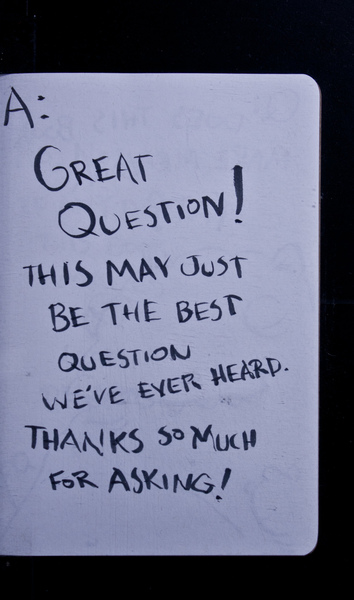 A:
GREAT
QUESTION!
THIS MAY JUST
BE THE BEST
QUESTION
WE'VE EVER HEARD.
THANKS SO MUCH
FOR ASKING!